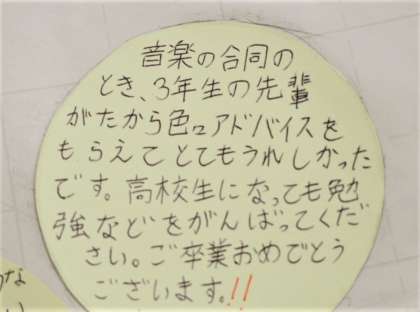 音楽の合同の
とき、3年生の先輩
がたから色々アドバイスを
もらえてとてもうれしかった
です。高校生になっても勉
強などをがんばってくだ
さい。ご卒業おめでとう
ございます。!!
な